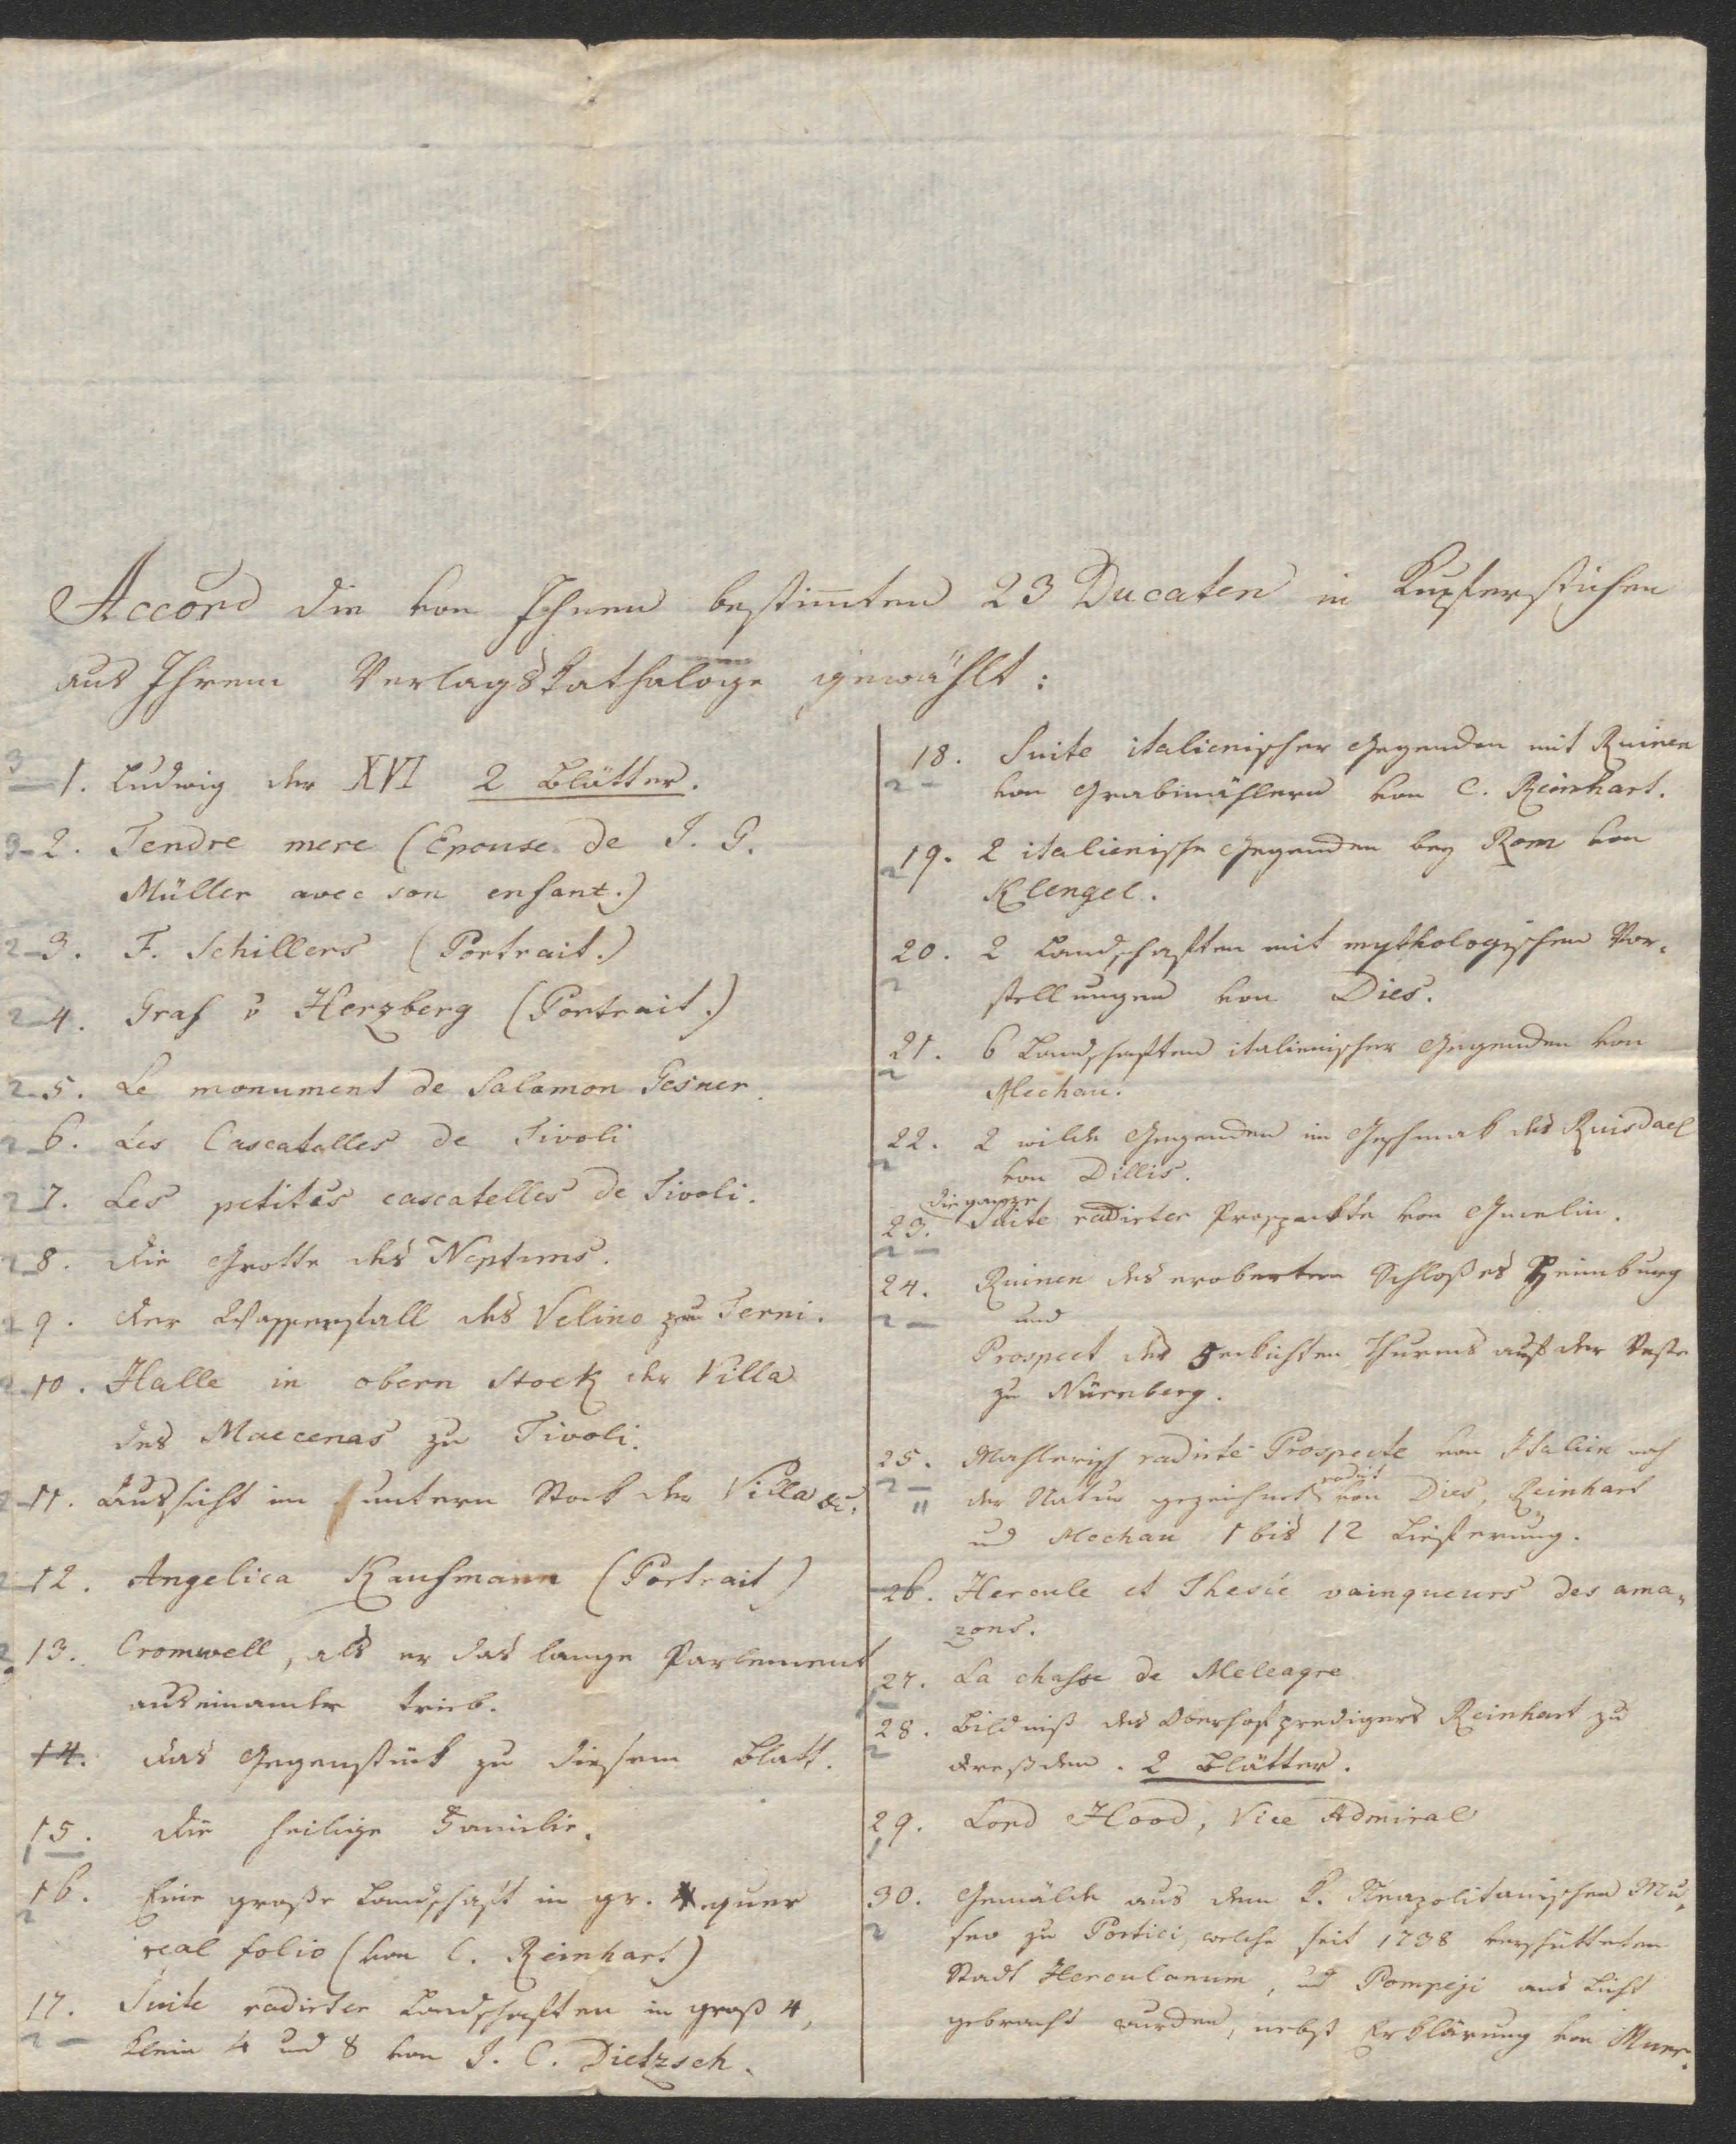 Accord die von Ihnen bestim̅ten 23 Ducaten in Kupferstichen
aus Ihrem Verlagskathaloge gewählt:
3 1. Ludwig der XVI 2 Blätter.
3 2. Tendre mere (Epouse de J. G.
Müller avec son enfant.)
2 3. F. Schillers (Portrait.)
2 4. Graf v Herzberg (Portrait.)
2 5. Le monument de Salamon Gesner.
2 6. Les Cascatelles de Tivoli
2 7. Les petites cascatelles de Tivoli.
2 8. die Grotte des Neptuns.
2 9. der Wasserfall des Velino zu Terni.
2 10. Halle in obern Stock der Villa
des Maecenas zu Tivoli.
2 11. Aussicht im untern Stock der Villa &c.
2 12. Angelica Kaufmann (Portrait)
2 13. Cromwell, als er das lange Parlement
auseinander trieb.
14. das Gegenstück zu diesem Blatt.
15. die heilige Familie.
1
16. Eine große Landschaft in gr. quer
2
real folio (von C. Reinhart)
17. Suite radirter Landschaften in groß 4,
2
klein 4 und 8 von J. C. Dietzsch.
18. Suite italienischer Gegenden mit Ruinen
2
von Grabmählern von C. Reinhart.
19. 2 italienische Gegenden bey Rom von
2
Klengel.
20. 2 Landschaften mit mythologischen Vor-
2
stellungen von Dies.
21. 6 Landschaften italienischer Gegenden von
2
Mechau.
22. 2 wilde Gegenden im Geschmak des Ruisdael
2
von Dillis.
die ganze
23. Suite radirter Prospeckte von Gmelin.
2
24. Ruinen des eroberten Schloßes Heimburg
2
und
Prospect des 5eckichten Thurms auf der Veste
zu Nürnberg.
25. Mahlerisch radirte Prospecte von Italien nach
2
radirt
der Natur gezeichnet von Dies, Reinhart
und Mechau 1 bis 12 Lieferung.
26. Hercule et Thesée vainqueurs des ama-
zons.
27. La chasse de Meleagre
1
28. Bildniß des Oberhofpredigers Reinhart zu
2
Dreßden. 2 Blätter.
29. Lord Hood, Vice Admiral
1
30. Gemälde aus dem K. Neapolitanischen Mu-
2
seo zu Portici, welche seit 1738 verschütteten
Stadt Herculanum, und Pompeji ans Licht
gebracht wurden, nebst Erklärung von Murr.